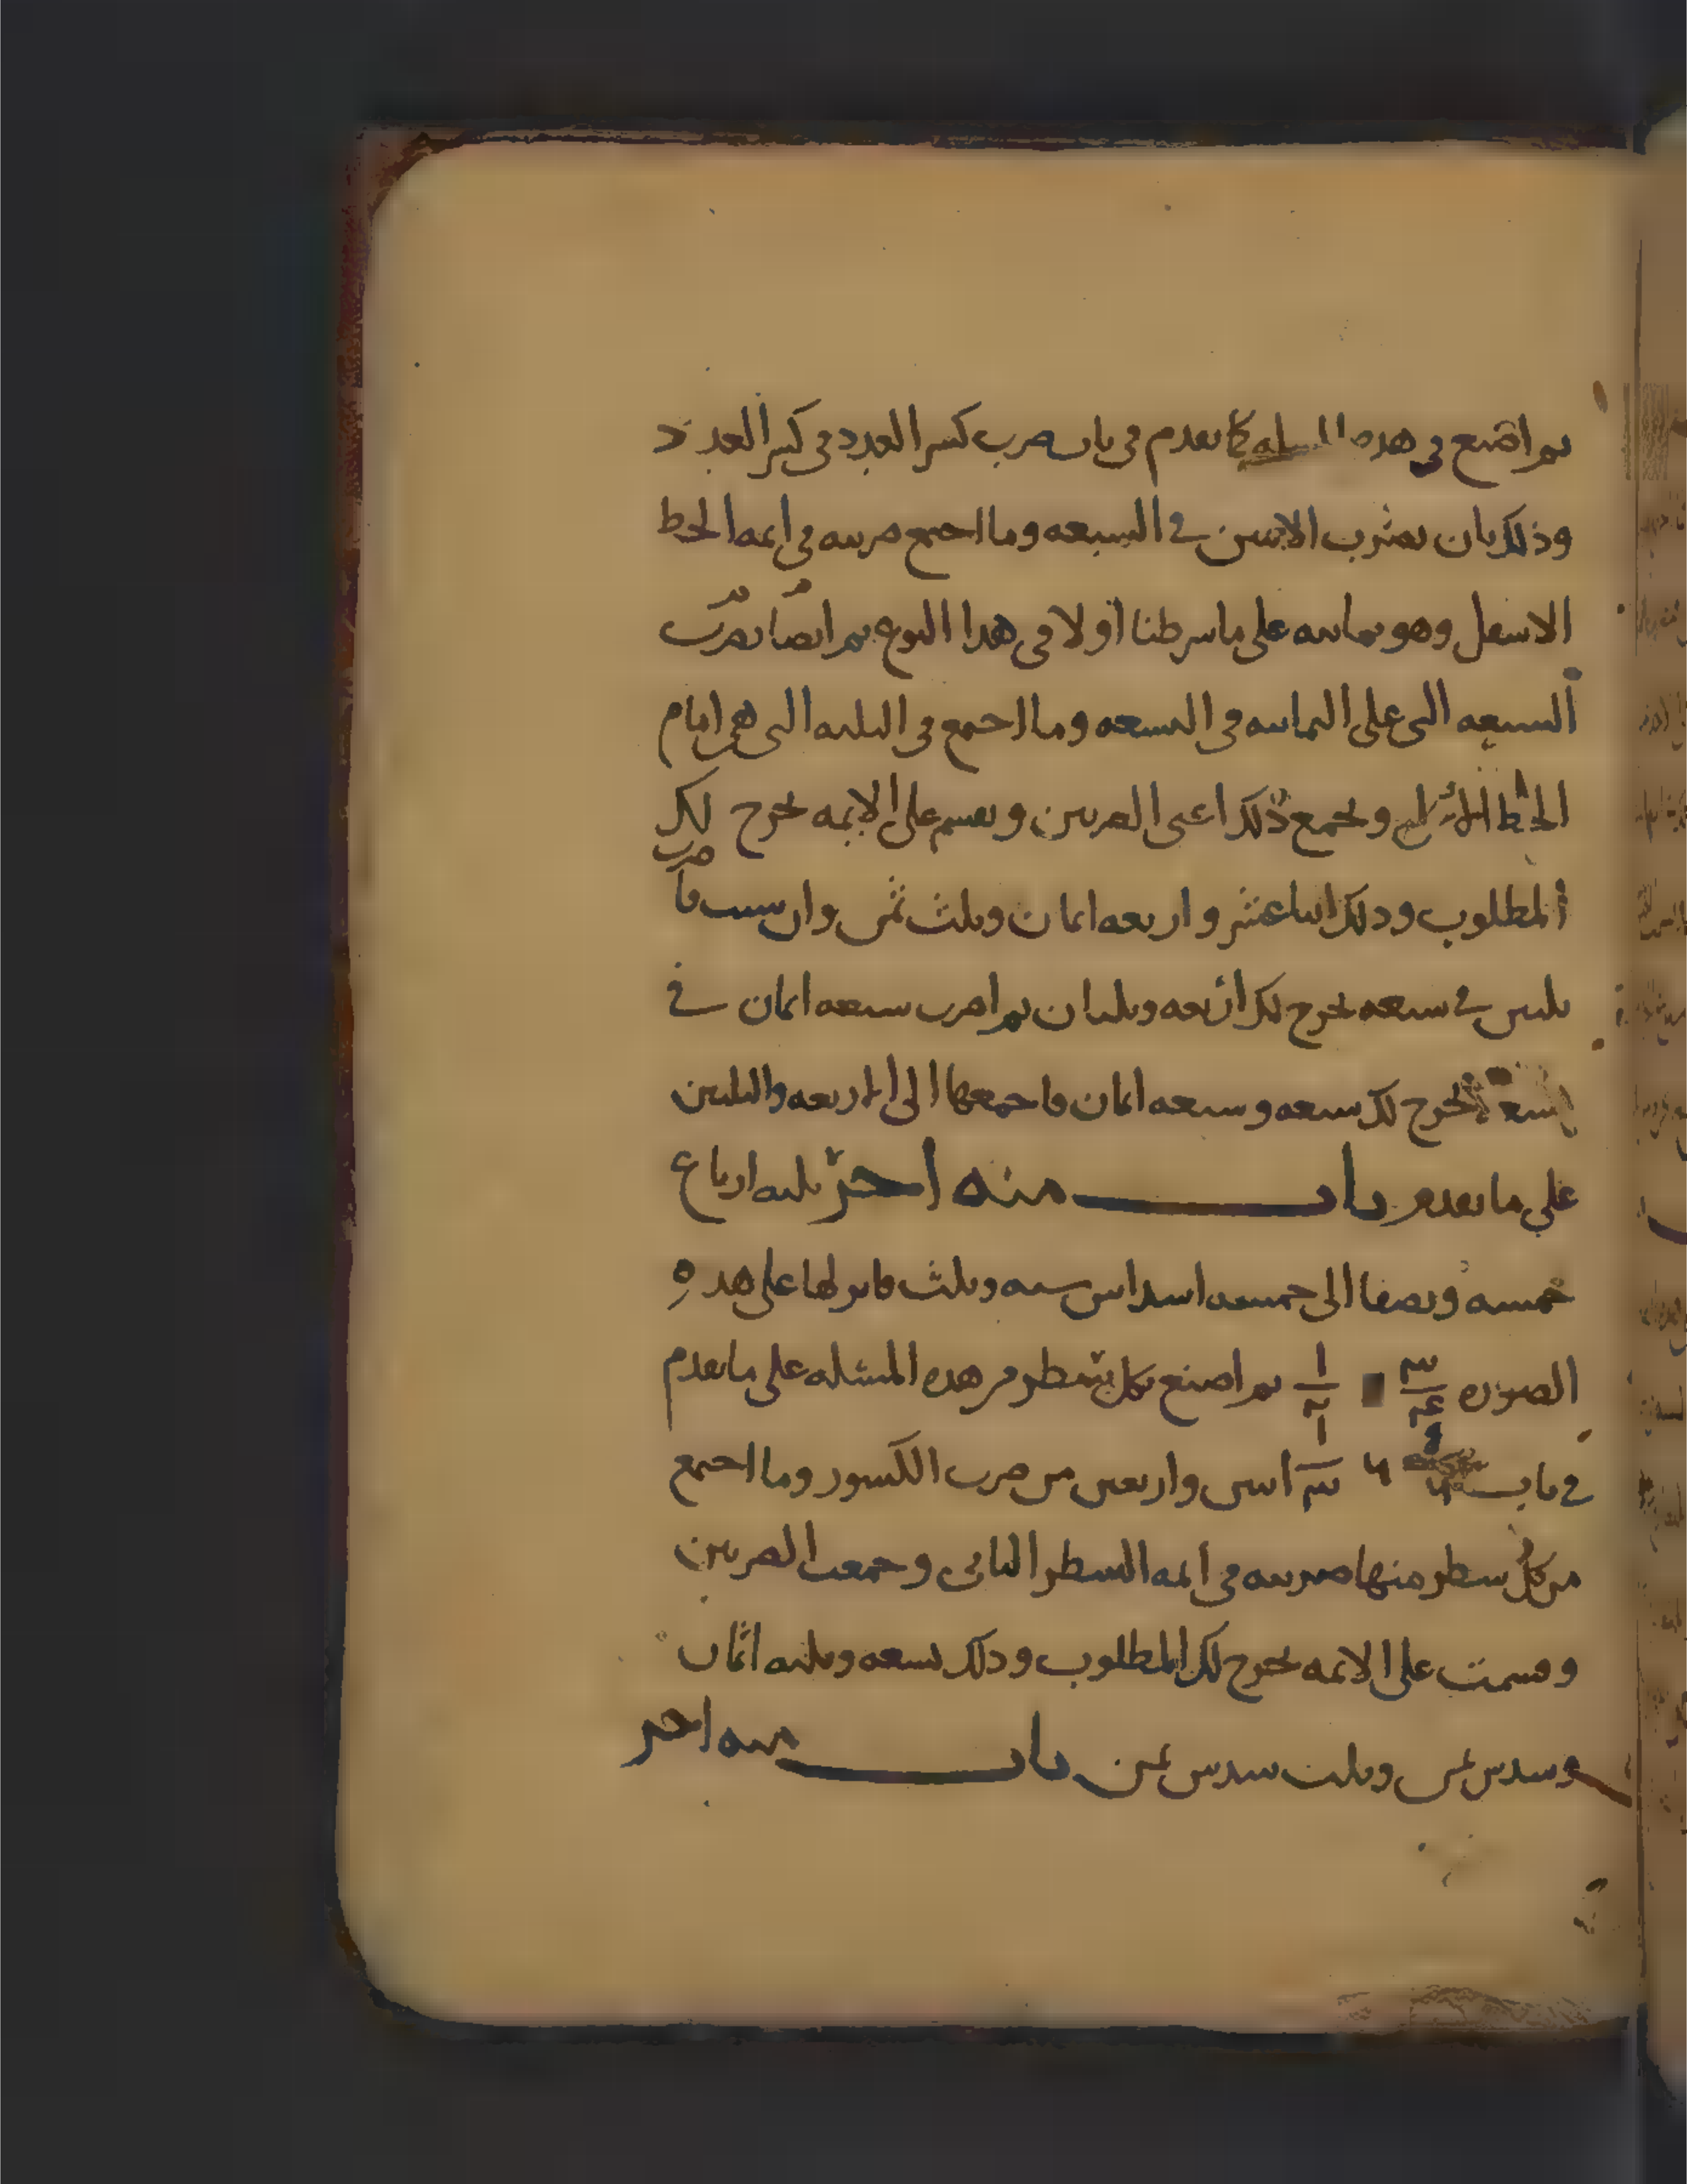 ثم اصنع في هذه المسله كما تقدم في باب ضرب كسر العدد في كسر العدد
وذلك بان تضرب الاثنين في السبعه وما اجتمع ضربته في ايمه الخط
الاسفل وهو ثمانيه على ما شرطنا اولا في هذا النوع ثم ايضا تضرب
السبعه التي على الثمانيه في التسعه وما اجتمع في الثلثه التي هي امام
الخط وتجمع ذلك اعني الضربين وتقسم على الايمه يخرج لك
المطلوب وذلك اثنا عشر واربعه اثمان وثلث ثمن وان شيت فاضرب
ثلثين في سبعه يخرج لك اربعه وثلثان ثم اضرب سبعه اثمان في
تسعة يخرج لك سبعه وسبعه اثمان فاجمعها الى الاربعه والثلثين
على ما تقدم باب منه اخر ثلثه ارباع
خمسه ونصفا الى خمسه اسداس سته وثلث فانزلها على هذه
الصوره ٣ ٤ ١ ٢ ثم اصنع بكل سطر من هذه المسئله على ما تقدم
في باب اثنين واربعين من ضرب الكسور وما اجتمع
من كل سطر منها ضربته في ايمه السطر الثاني وجمعت الضربين
وقسمت على الايمه يخرج لك المطلوب وذلك تسعه وثلثه اثمان
وسدس ثمن وثلث سدس ثمن باب منه اخر